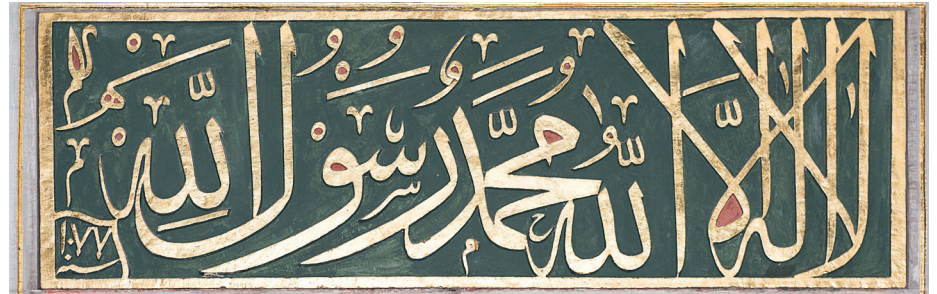 لا اله الا الله محمد رسول الله
سنه ١٠٧٧